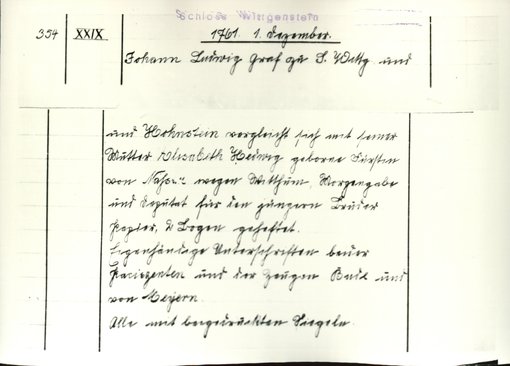 Schloss Wittgenstein
354 XXIX 1761. 1. Dezember.
Johann Ludwig Graf zu S. Wittg. und
und Hohnstein vergleicht sich mit seiner
Mutter Elisabeth Hedwig geborne Fürstin
von Nassau wegen Witthum, Morgengabe
und Deputat für den jüngern Bruder
Papier, 2 Bogen geheftet.
Eigenhändige Unterschriften beider
Paciszenten und der Zeugen und
von Meyern.
Alle mit beigedruckten Siegeln.